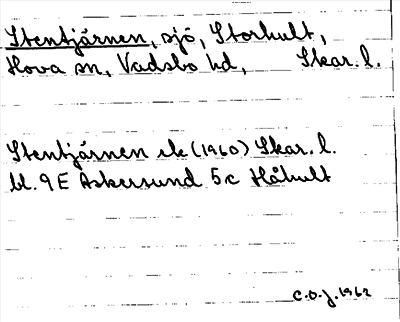 Stentjärnen, sjö, Storhult,
Hova sn, Vadsbo hd, Skar. l.
Stentjärnen ek (1960) Skar. l.
bl. 9E Askersund 5c Håhult
C.O.J. 1962